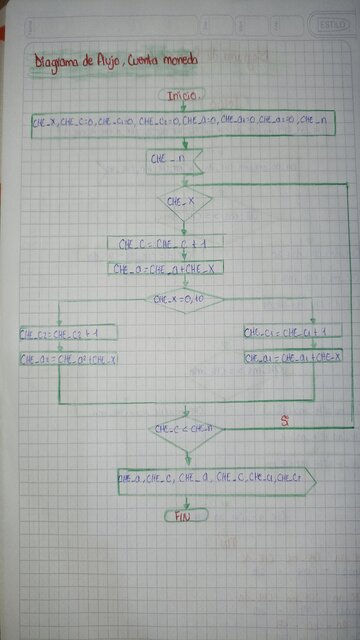 ESTILO
Diagrama de Flujo, Cuenta moneda
Inicio.
CHE_X, CHE_C=0, CHE_C1=0, CHE_C2=0, CHE_a=0, CHE_a1=0, CHE_a2=0, CHE_n
CHE_n
CHE_X
CHE_C = CHE_C + 1
CHE_a = CHE_a + CHE_X
CHE_X=0,10
CHE_C2=CHE_C2+1
CHE_C1=CHE_C1+1
CHE_a2=CHE_a2+CHE_X
CHE_a1=CHE_a1+CHE_X
Si
CHE_C < CHE_n
CHE_a, CHE_C, CHE_a, CHE_C, CHE_C1, CHE_C2
FIN